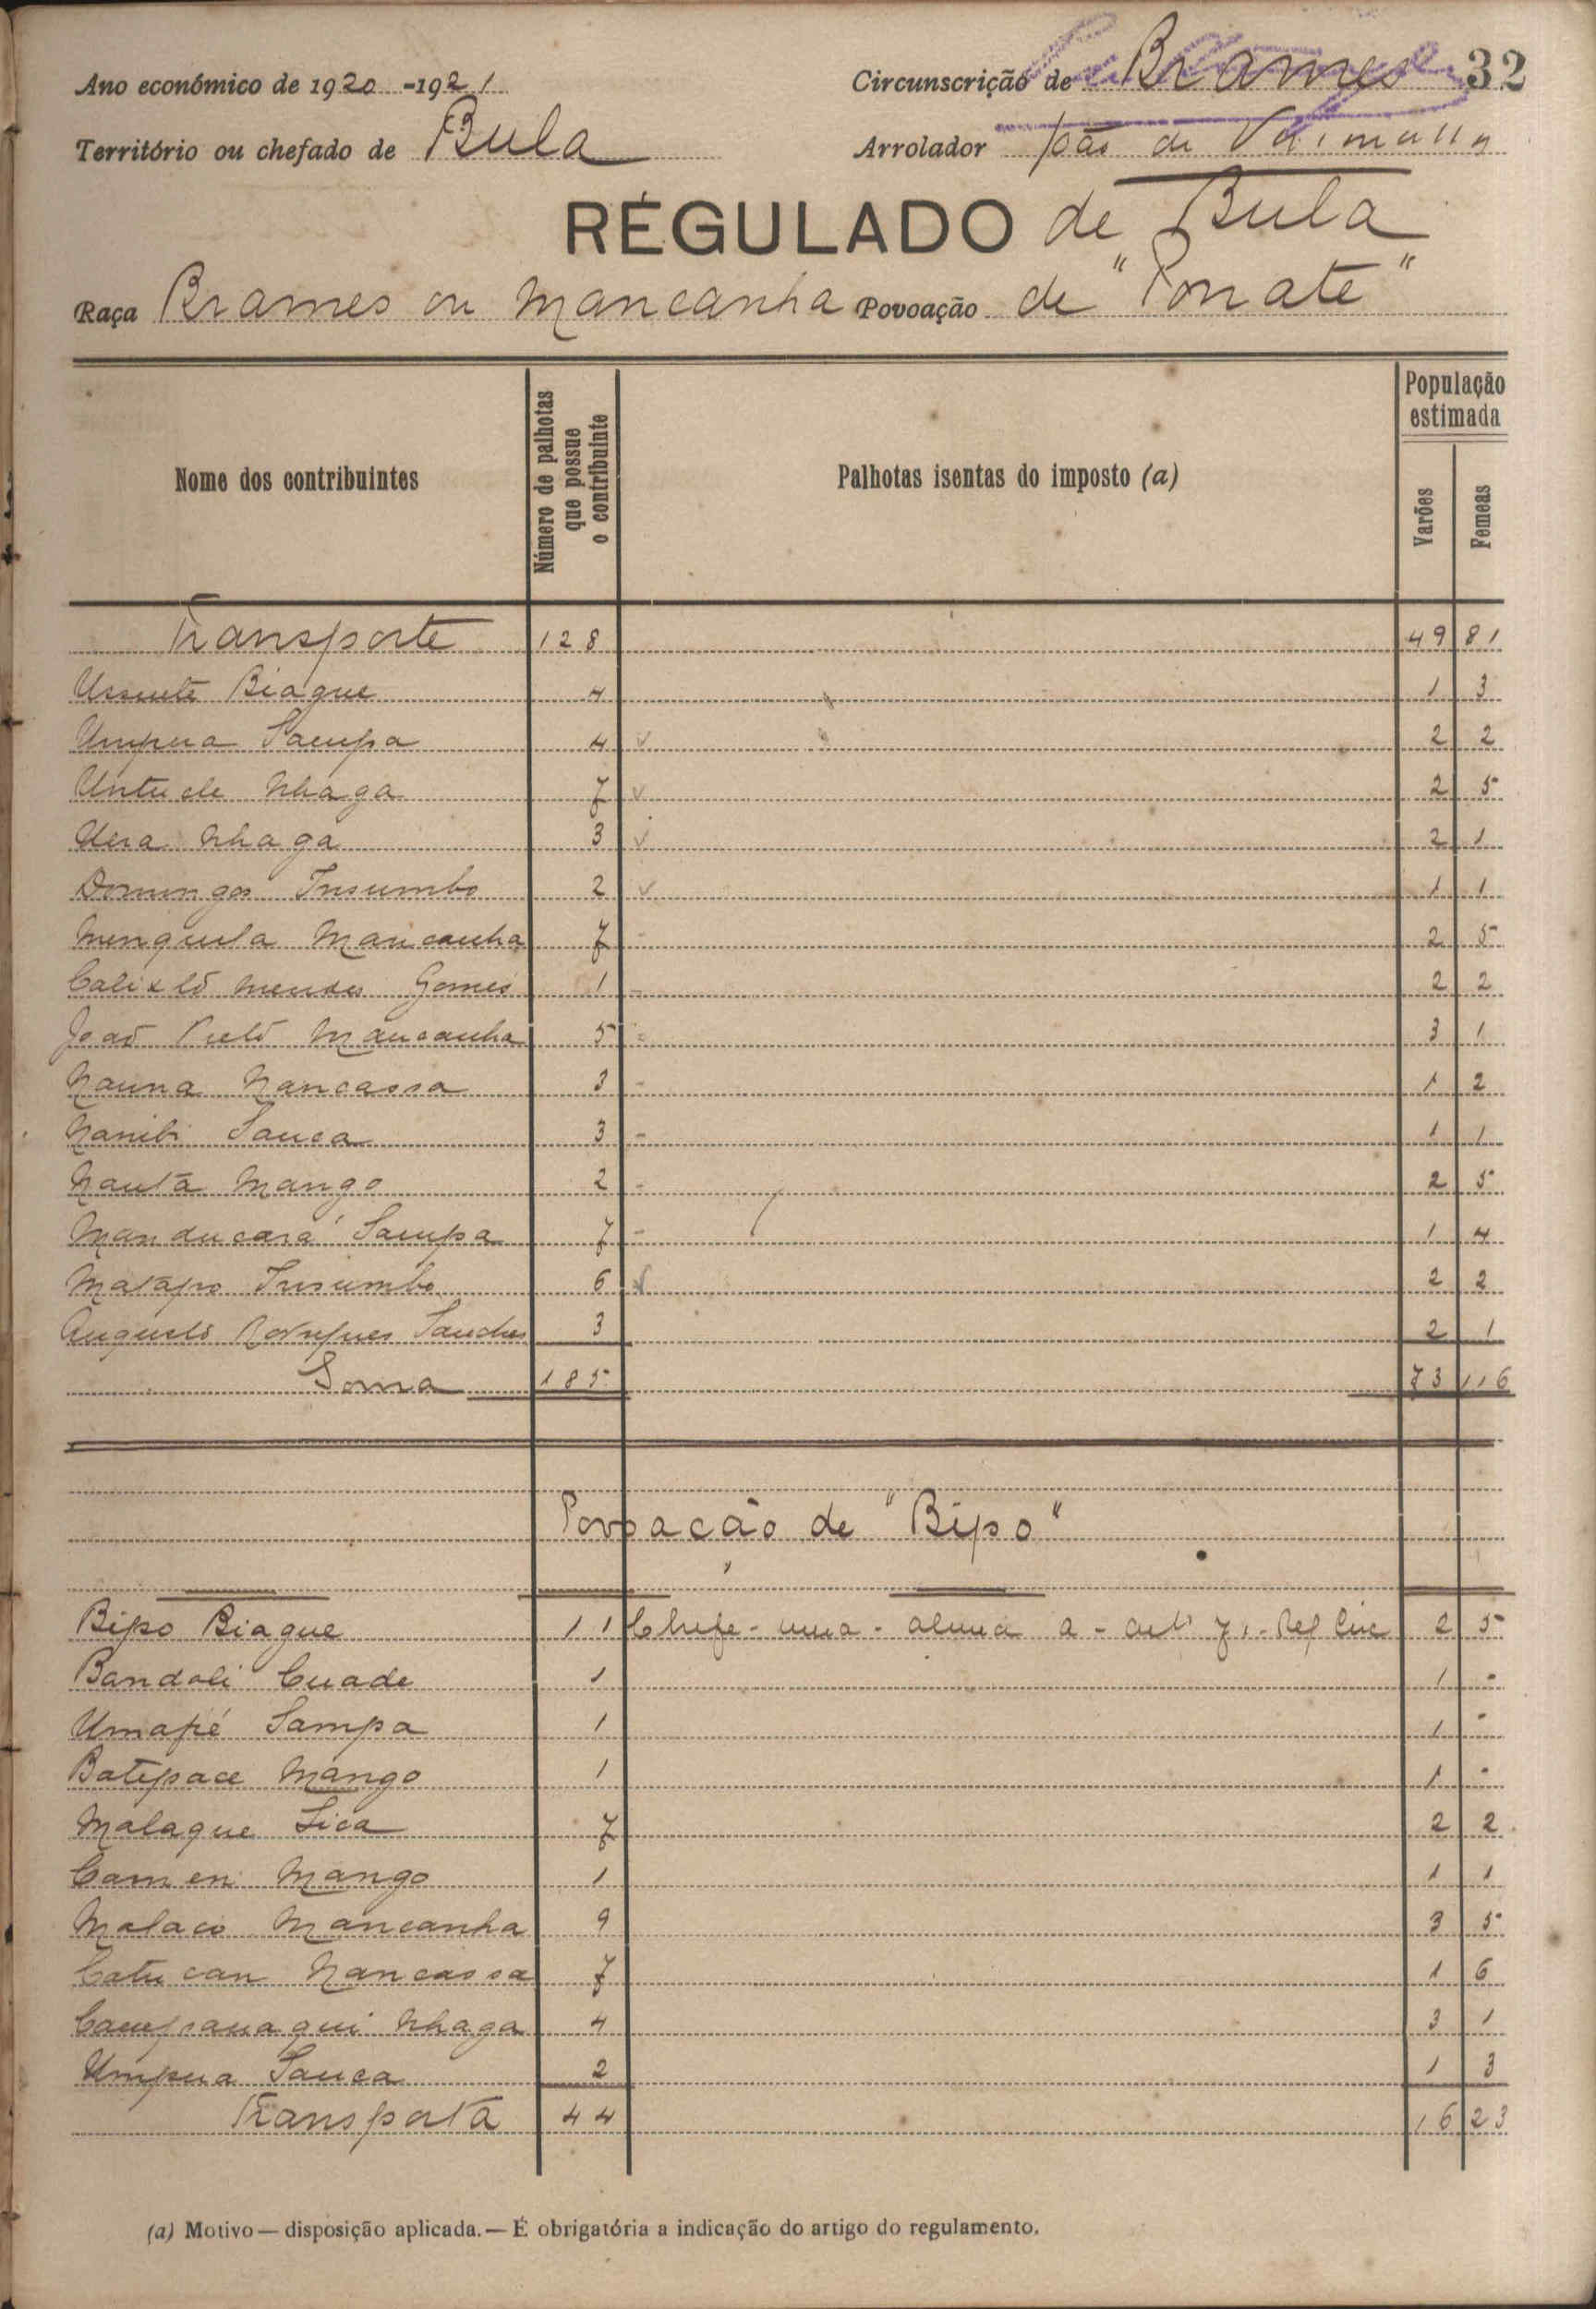 Ano económico de 1920-1921 Circunscrição de Brames 32
Território ou chefado de Bula Arrolador João de
RÉGULADO de Bula
Raça Brames ou Mancanha Povoação de "Ponate"
Nome dos contribuintes Número de palhotas que possue o contribuinte Palhotas isentas do imposto (a) População estimada Varões Femeas
Transporte 128 49 81
Biague 4 1 3
Umpua Sampa 4 v 2 2
Untude Nhaga 7 v 2 5
Uera Nhaga 3 v 2 1
Domingos Insumbo 2 v 1 1
Menquila Mancanha 7 - 2 5
Calixtõ Mendes Gomes 1 - 2 2
João Pretõ Mancanha 5 - 3 1
Nauna Nancassa 3 - 1 2
Nanibi Sanca 3 - 1 1
Nautã Mango 2 - 2 5
Manducará Sampa 7 - 1 4
Matapo Insumbo 6 v 2 2
Augusto Rodrigues Sanches 3 2 1
Soma 185 73 116
Povoação de "Bipo"
Bipo Biague 11 Chefe - uma - alinea a - artº 7, - Reg Circ 2 5
Bandoli Cuade 1 1 -
Umapé Sampa 1 1 -
Batepace Mango 1 1 -
Malague Sica 7 2 2
Camen Mango 1 1 1
Malaco Mancanha 9 3 5
Catucan Nancassa 7 1 6
Campanaqui Nhaga 4 3 1
Umpua Sanca 2 1 3
Transporta 44 16 23
(a) Motivo — disposição aplicada. — É obrigatória a indicação do artigo do regulamento.